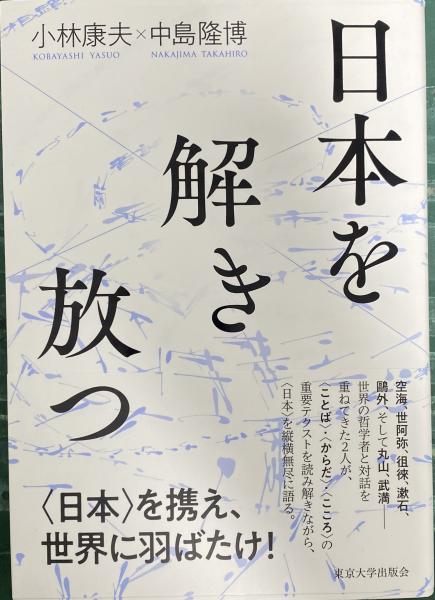 小林康夫×中島隆博
KOBAYASHI YASUO NAKAJIMA TAKAHIRO
日本を
解き
放つ
空海、世阿弥、徂徠、漱石、
鷗外、そして丸山、武満――
世界の哲学者と対話を
重ねてきた2人が、
〈ことば〉〈からだ〉〈こころ〉の
重要テクストを読み解きながら、
〈日本〉を縦横無尽に語る。
〈日本〉を携え、
世界に羽ばたけ!
東京大学出版会